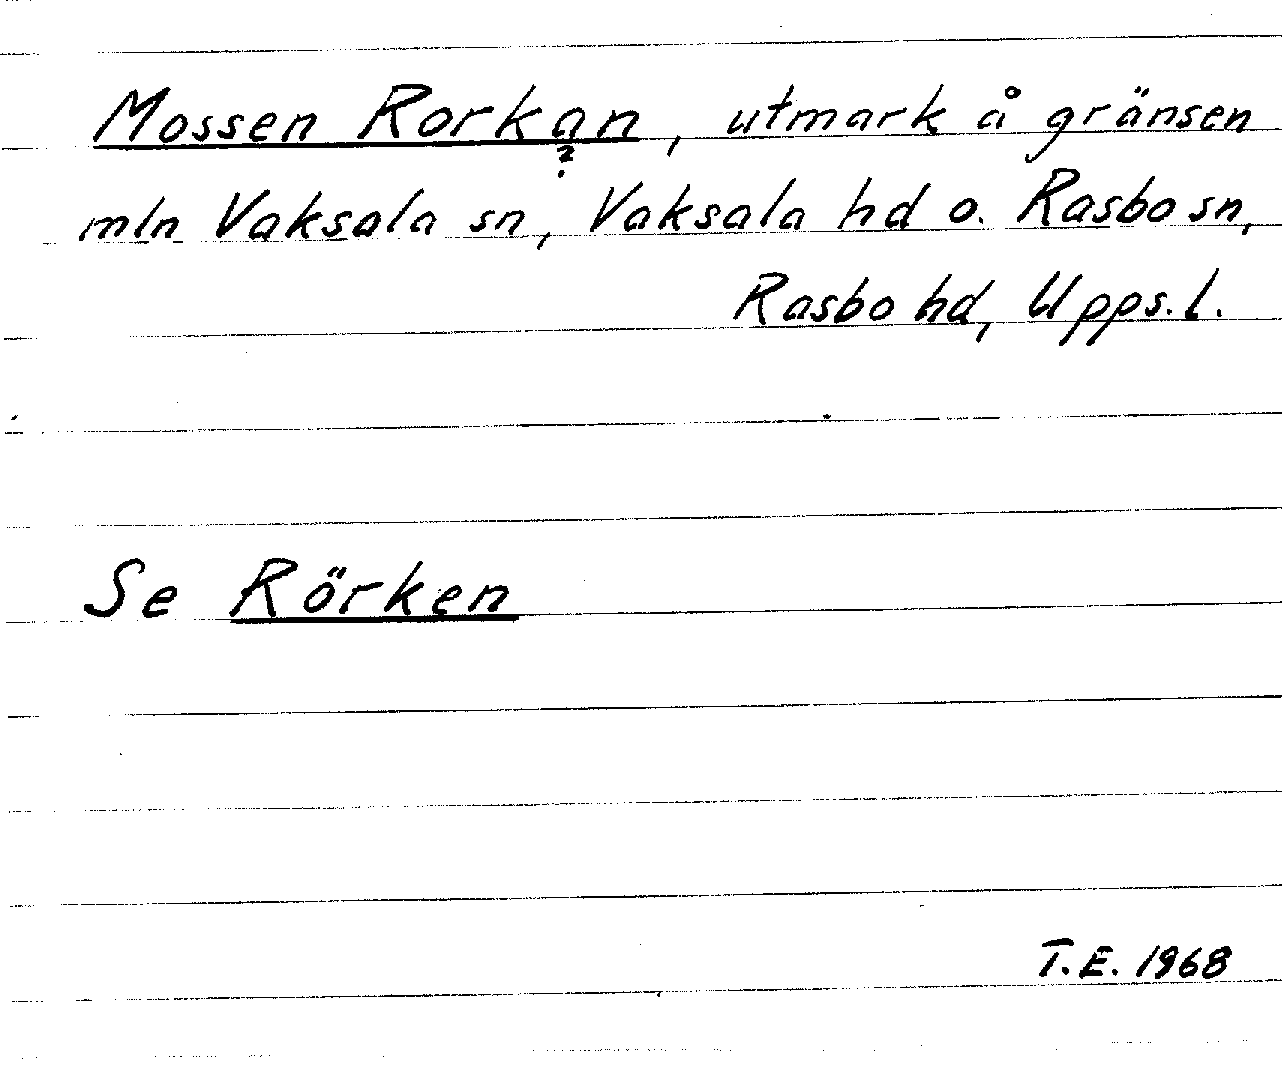 Mossen Rorkan, utmark å gränsen
?
mln Vaksala sn, Vaksala hd o. Rasbo sn,
Rasbo hd, Upps. l.
Se Rörken
T.E. 1968